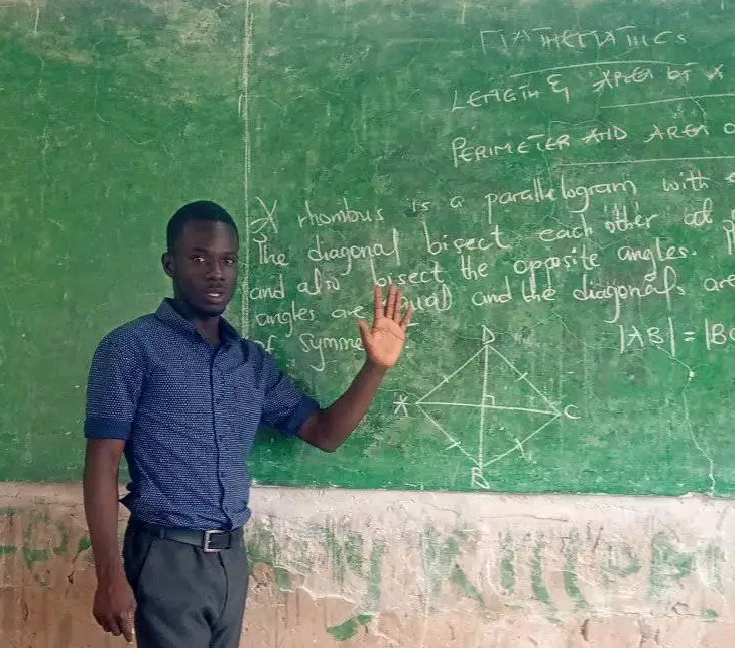 MATHEMATICS
LENGTH & AREA OF A
PERIMETER AND AREA O
A rhombus is a parallelogram with
The diagonal bisect each other at
and also bisect the opposite angles.
angles are equal and the diagonals are
of symme
|AB| = |BC
D
A
C
B